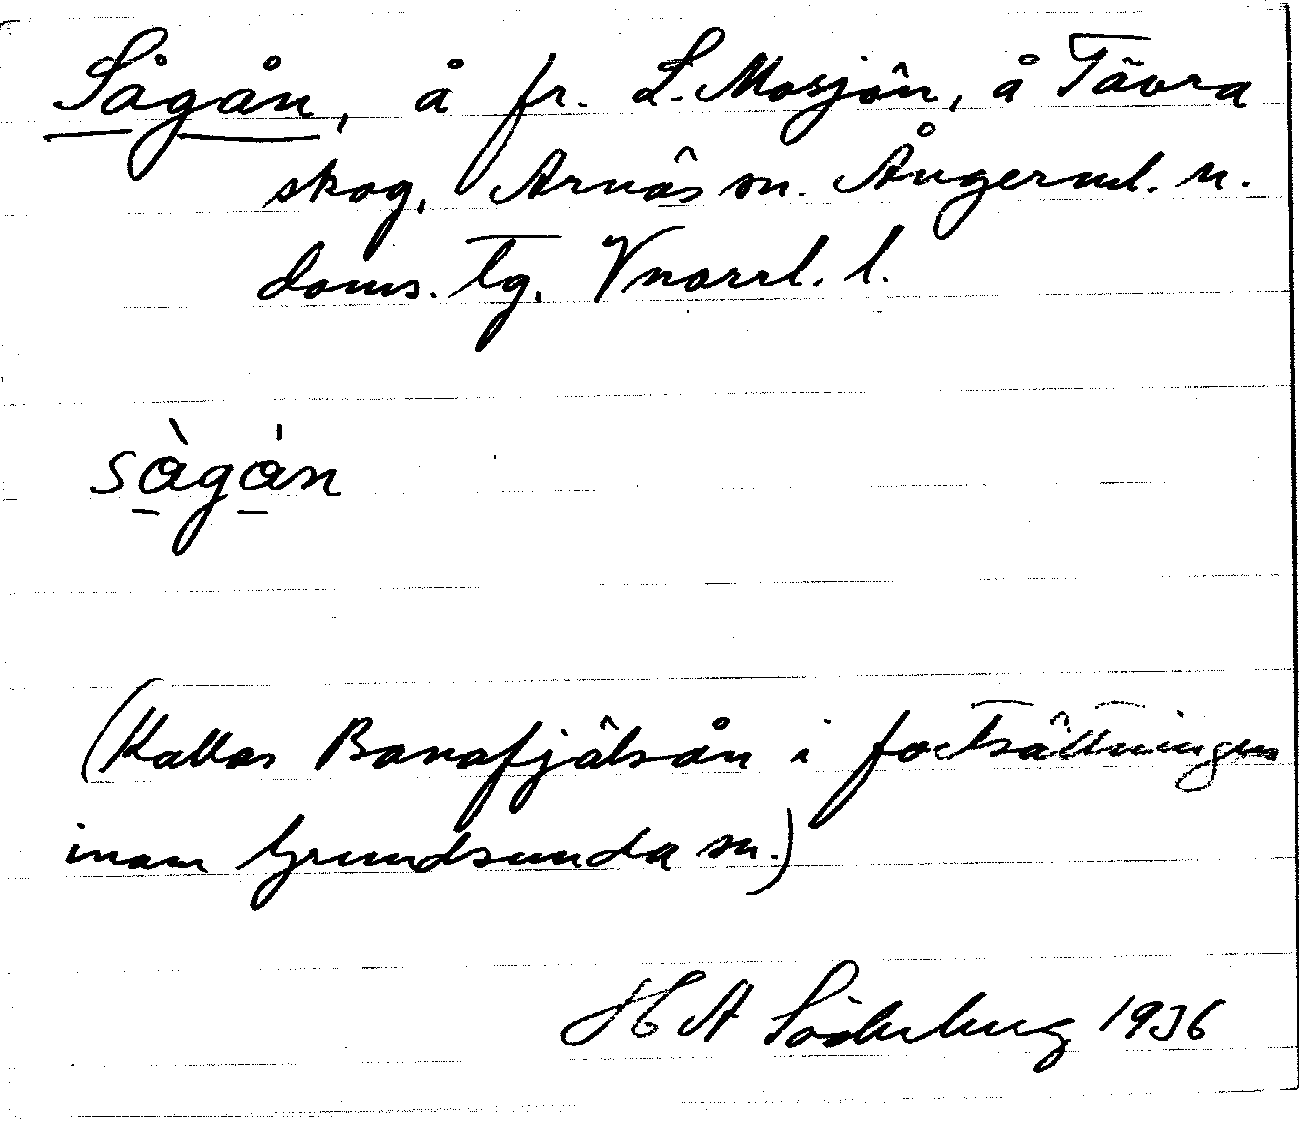 Sågån, å fr. L. Mosjön, å Tävra
skog, Arnäs sn. Ångerml. n.
doms. tg. Vnorrl. l.
sàgán
(Kallas Banafjälsån i fortsättningen
inom Grundsunda sn.)
H A Söderberg 1936